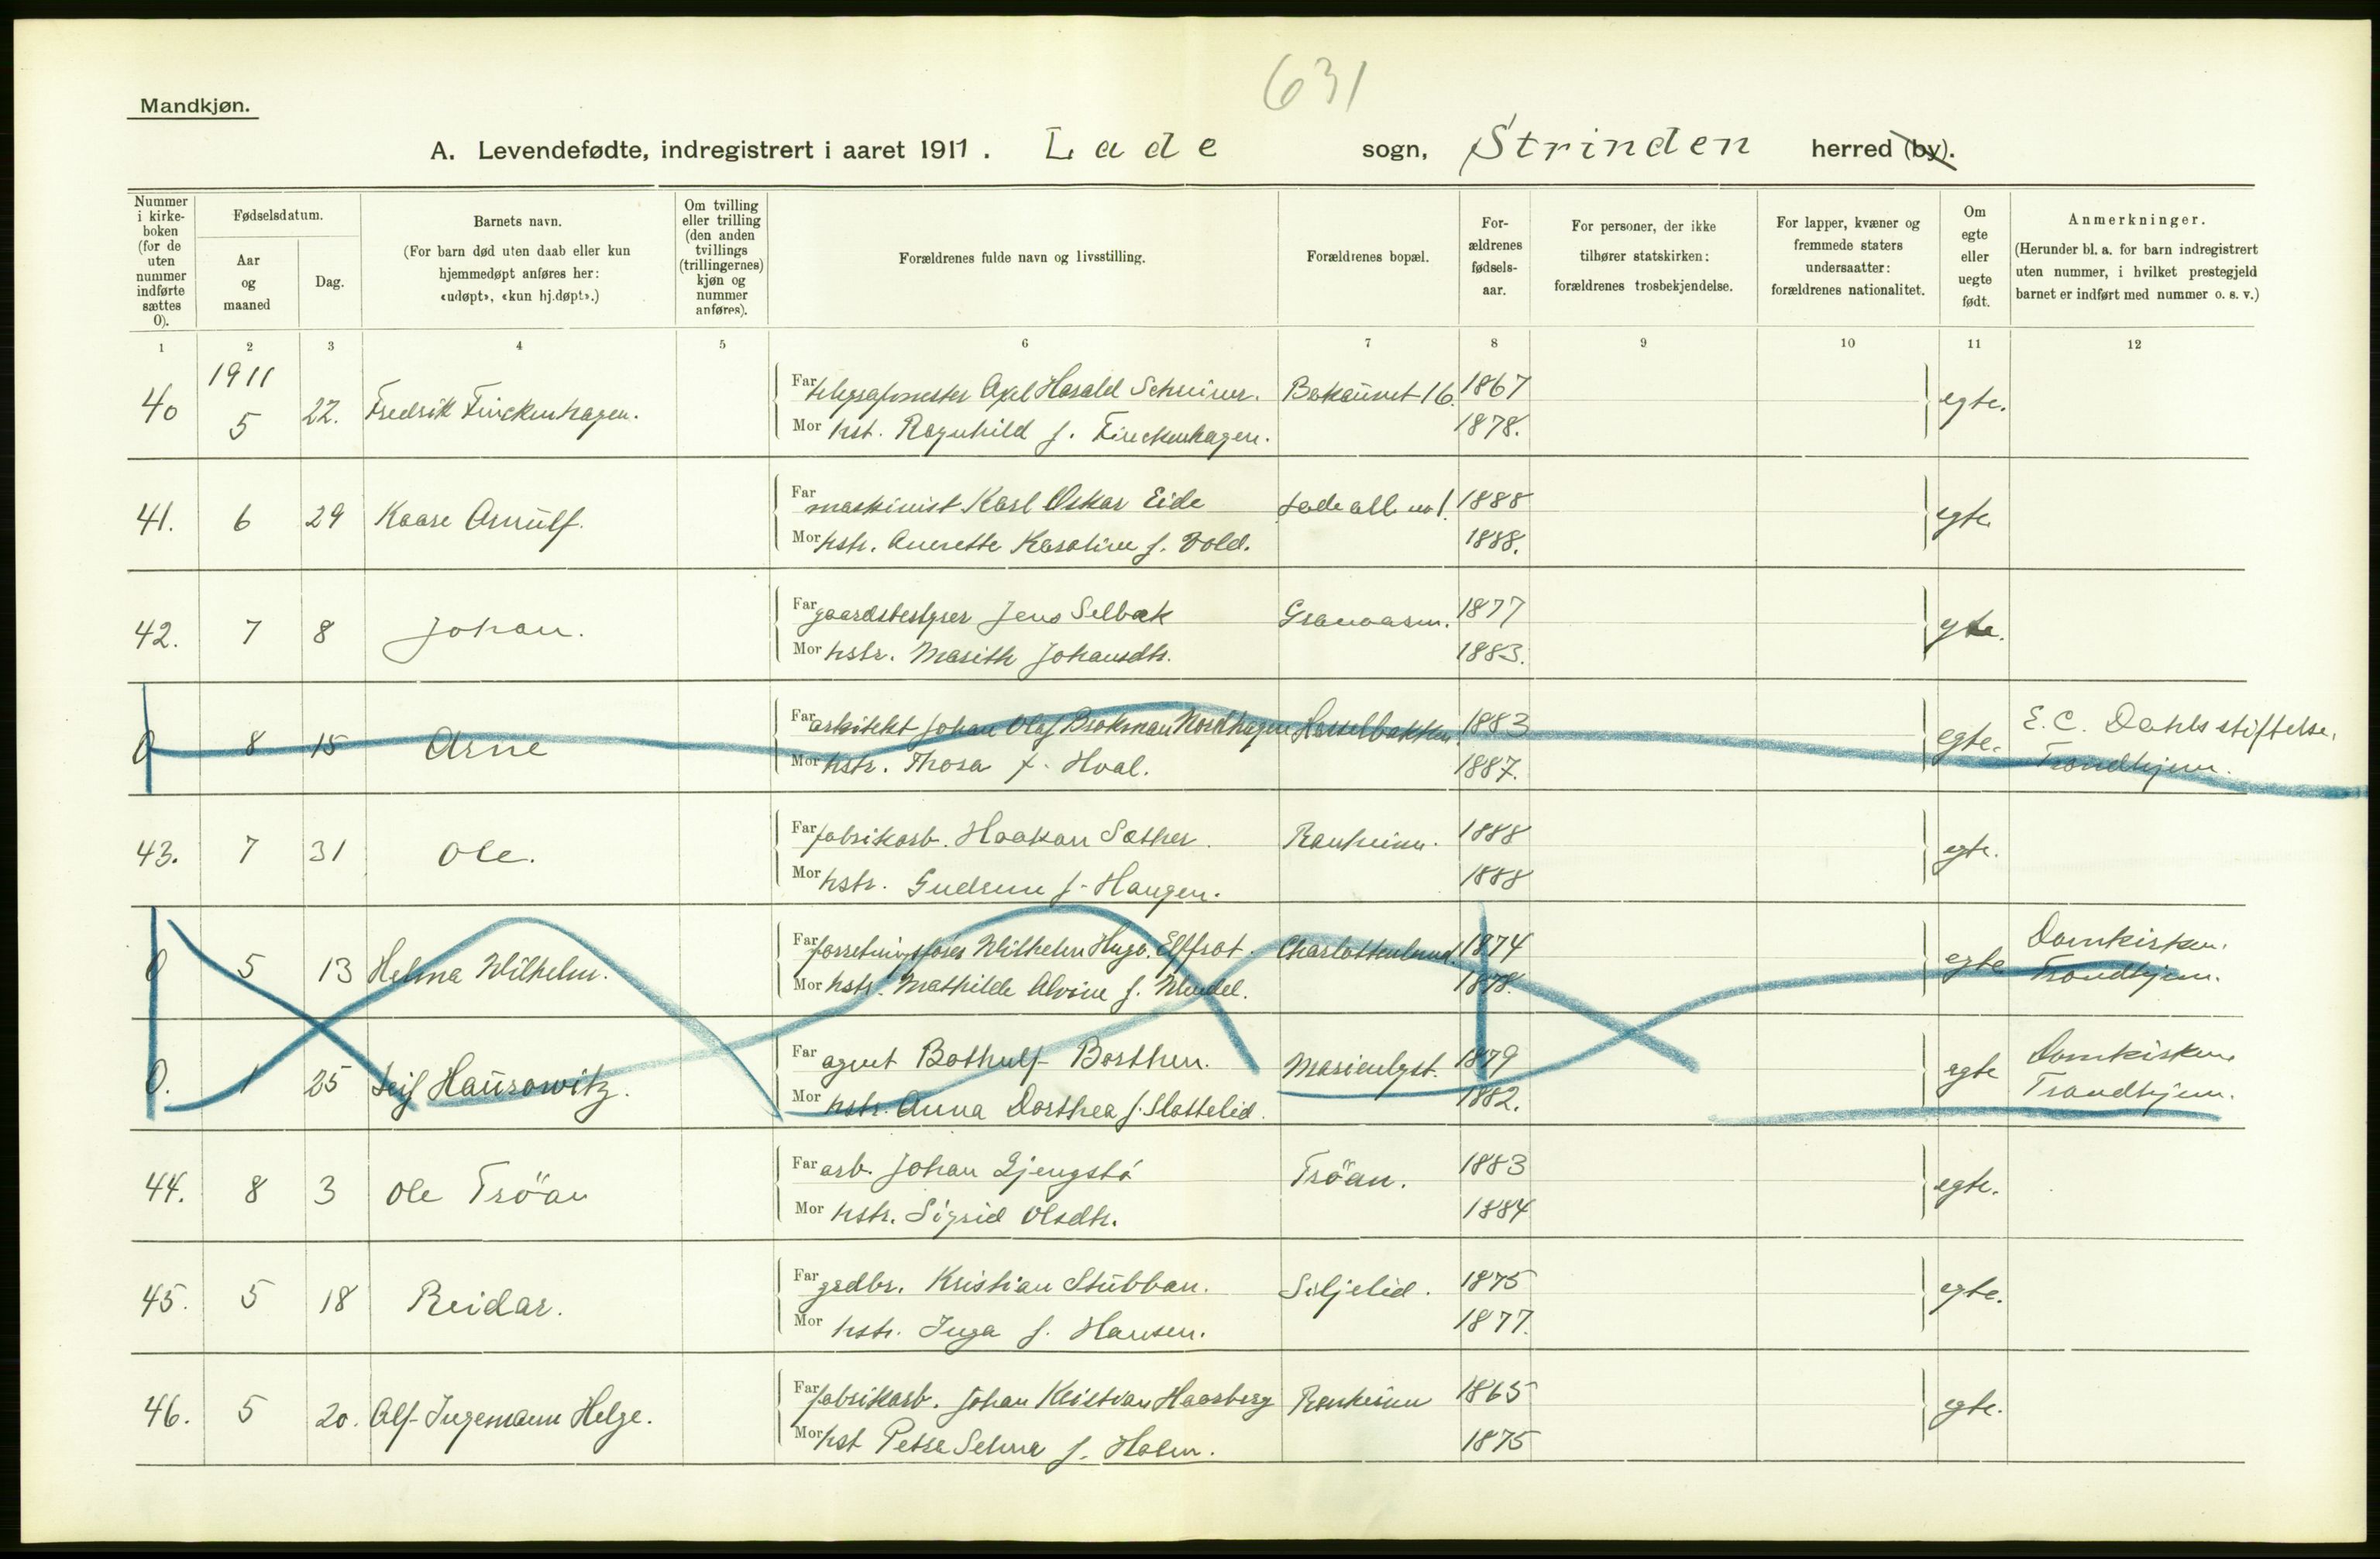 631
Mandkjøn.
A. Levendefødte, indregistrert i aaret 1911. Lade sogn, Strinden herred (by).
Nummer i kirkeboken (for de uten nummer indførte sættes 0).
Fødselsdatum.
Aar og maaned
Dag.
Barnets navn.
(For barn død uten daab eller kun hjemmedøpt anføres her: «udøpt», «kun hj.døpt».)
Om tvilling eller trilling (den anden tvillings (trillingernes) kjøn og nummer anføres).
Forældrenes fulde navn og livsstilling.
Forældrenes bopæl.
Forældrenes fødselsaar.
For personer, der ikke tilhører statskirken: forældrenes trosbekjendelse.
For lapper, kvæner og fremmede staters undersaatter: forældrenes nationalitet.
Om egte eller uegte født.
Anmerkninger.
(Herunder bl. a. for barn indregistrert uten nummer, i hvilket prestegjeld barnet er indført med nummer o. s. v.)
1 2 3 4 5 6 7 8 9 10 11 12
1911
40 5 22. Fredrik Finckenhagen. Far telegrafmester Axel Harald Schreiner. Bakaunet 16. 1867 egte.
Mor hst. Ragnhild f. Finckenhagen. 1878.
41. 6 29 Kaare Arnulf. Far maskinist Karl Oskar Eide Lade all. no 1. 1888 egte
Mor hstr. Anerette Karoline f. Vold. 1888.
42. 7 8 Johan. Far gaardsbestyrer Jens Selbæk 1877 egte.
Mor hstr. Marith Johansdtr. 1883.
0 8 15 Arne Far arkitekt Johan Olaf Brokman Nordhagen Hasselbakken. 1883 egte. E. C. Dahls stiftelse,
Mor hstr. Thora f. Hval. 1887. Trondhjem.
43. 7 31 Ole. Far fabrikarb. Haakon Sæther. Ranheim. 1888 egte.
Mor hstr. Gudrun f. Haugen. 1888
0 5 13 Helma Wilhelm. Far forretningsfører Wilhelm Hugo Elffrot. Charlottenlund. 1874 egte Domkirken.
Mor hstr. Mathilde Alvine f. 1878. Trondhjem.
0. 1 25 Leif Hausowitz. Far agent Bothulf Borthen. Marienlyst. 1879 egte Domkirken,
Mor hstr. Anna Dorthea f. Slottelid. 1882. Trondhjem.
44. 8 3 Ole Tröan Far arb. Johan Gjengstö Tröan. 1883 egte.
Mor hstr. Sigrid Olsdtr. 1884
45. 5 18 Reidar. Far grdbr. Kristian Stubban. Siljelid. 1875 egte.
Mor hstr. Inga f. Hansen. 1877.
46. 5 20. Alf Ingemann Helge. Far fabrikarb. Johan Kristian Haarberg Ranheim 1865 egte.
Mor hst Petra Selma f. Holm. 1875